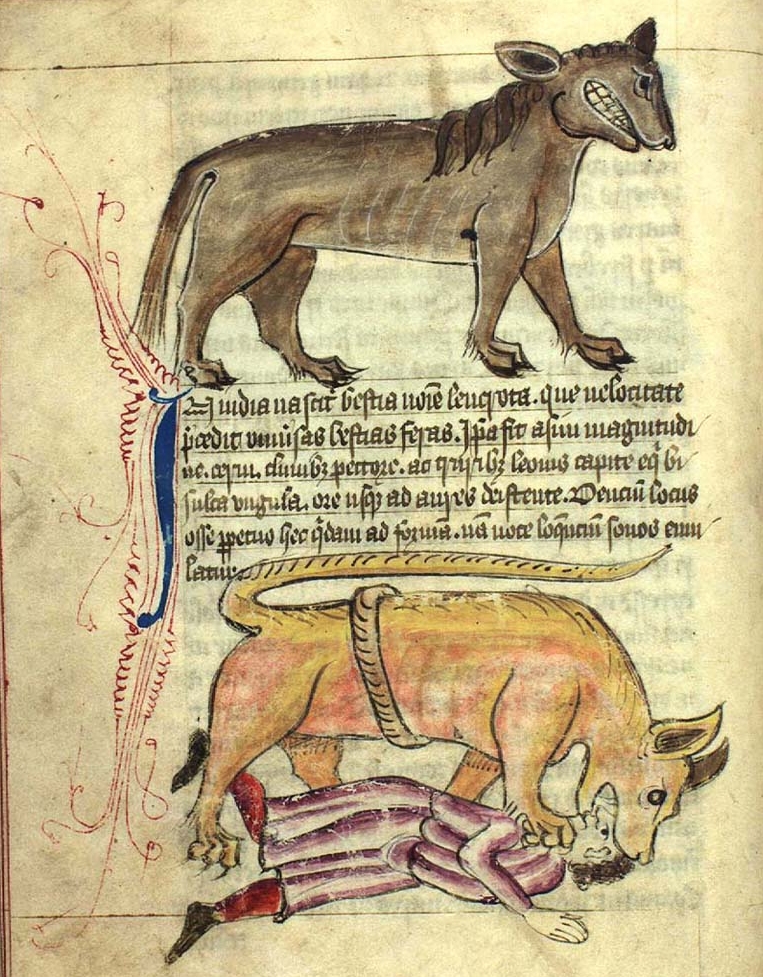 In india nascit͛ bestia noīe leucrota. que uelocitate
p̄cedit uniu͛sas bestias feras. Ip̄a fit asini magnitudi
ne. cerui. clunibꝫ pectore. ac cruribꝫ leonis capite eq̄ bi
sulca ungula. ore usqꝫ ad aures dehiscente. Dentiū locus
osse ꝑpetuo hec q̄dam ad formā. nā uoce loquentiū sonos emu
latur.